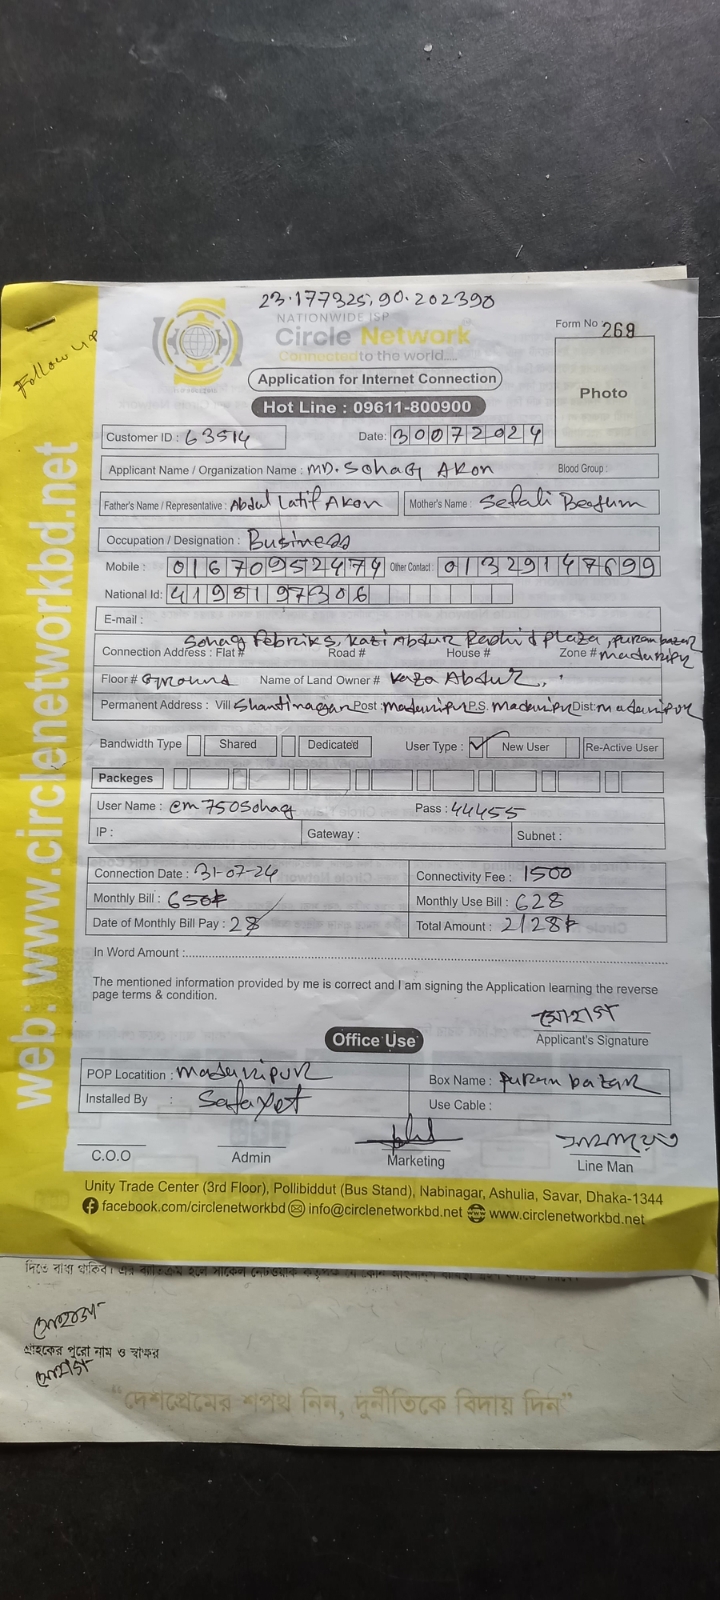 23.177325, 90.202390
Follow up
NATIONWIDE ISP
Circle Network
Connected to the world....
Form No 269
Application for Internet Connection
Photo
Hot Line : 09611-800900
Customer ID : 63514 Date: 30072024
Applicant Name / Organization Name : MD. Sohag Akon Blood Group :
Father's Name / Representative : Abdul Latif Akon Mother's Name : Sefali Begum
Occupation / Designation : Business
Mobile : 01670952474 Other Contact : 01329147699
National Id: 4198197306
E-mail :
Sohag Febriks, Kazi Abdur Rashid Plaza, Puran bazar
Connection Address : Flat # Road # House # Zone # Madaripur
Floor # Ground Name of Land Owner # Kaza Abdur,
Permanent Address : Vill Shantinagar Post : Madaripur P.S. Madaripur Dist: Madaripur
Bandwidth Type Shared Dedicated User Type : ✓ New User Re-Active User
Packeges
User Name : cm750Sohag Pass : 44455
IP : Gateway : Subnet :
Connection Date : 31-07-24 Connectivity Fee : 1500
Monthly Bill : 650৳ Monthly Use Bill : 628
Date of Monthly Bill Pay : 28 Total Amount : 2128৳
In Word Amount :
The mentioned information provided by me is correct and I am signing the Application learning the reverse
page terms & condition.
সোহাগ
Applicant's Signature
Office Use
POP Locatition : Madaripur Box Name : Puran bazar
Installed By : Safayet Use Cable :
C.O.O Admin Marketing Line Man
Unity Trade Center (3rd Floor), Pollibiddut (Bus Stand), Nabinagar, Ashulia, Savar, Dhaka-1344
facebook.com/circlenetworkbd info@circlenetworkbd.net www.circlenetworkbd.net
web: www.circlenetworkbd.net
গ্রাহকের পুরো নাম ও স্বাক্ষর
সোহাগ
"দেশপ্রেমের শপথ নিন, দুর্নীতিকে বিদায় দিন"